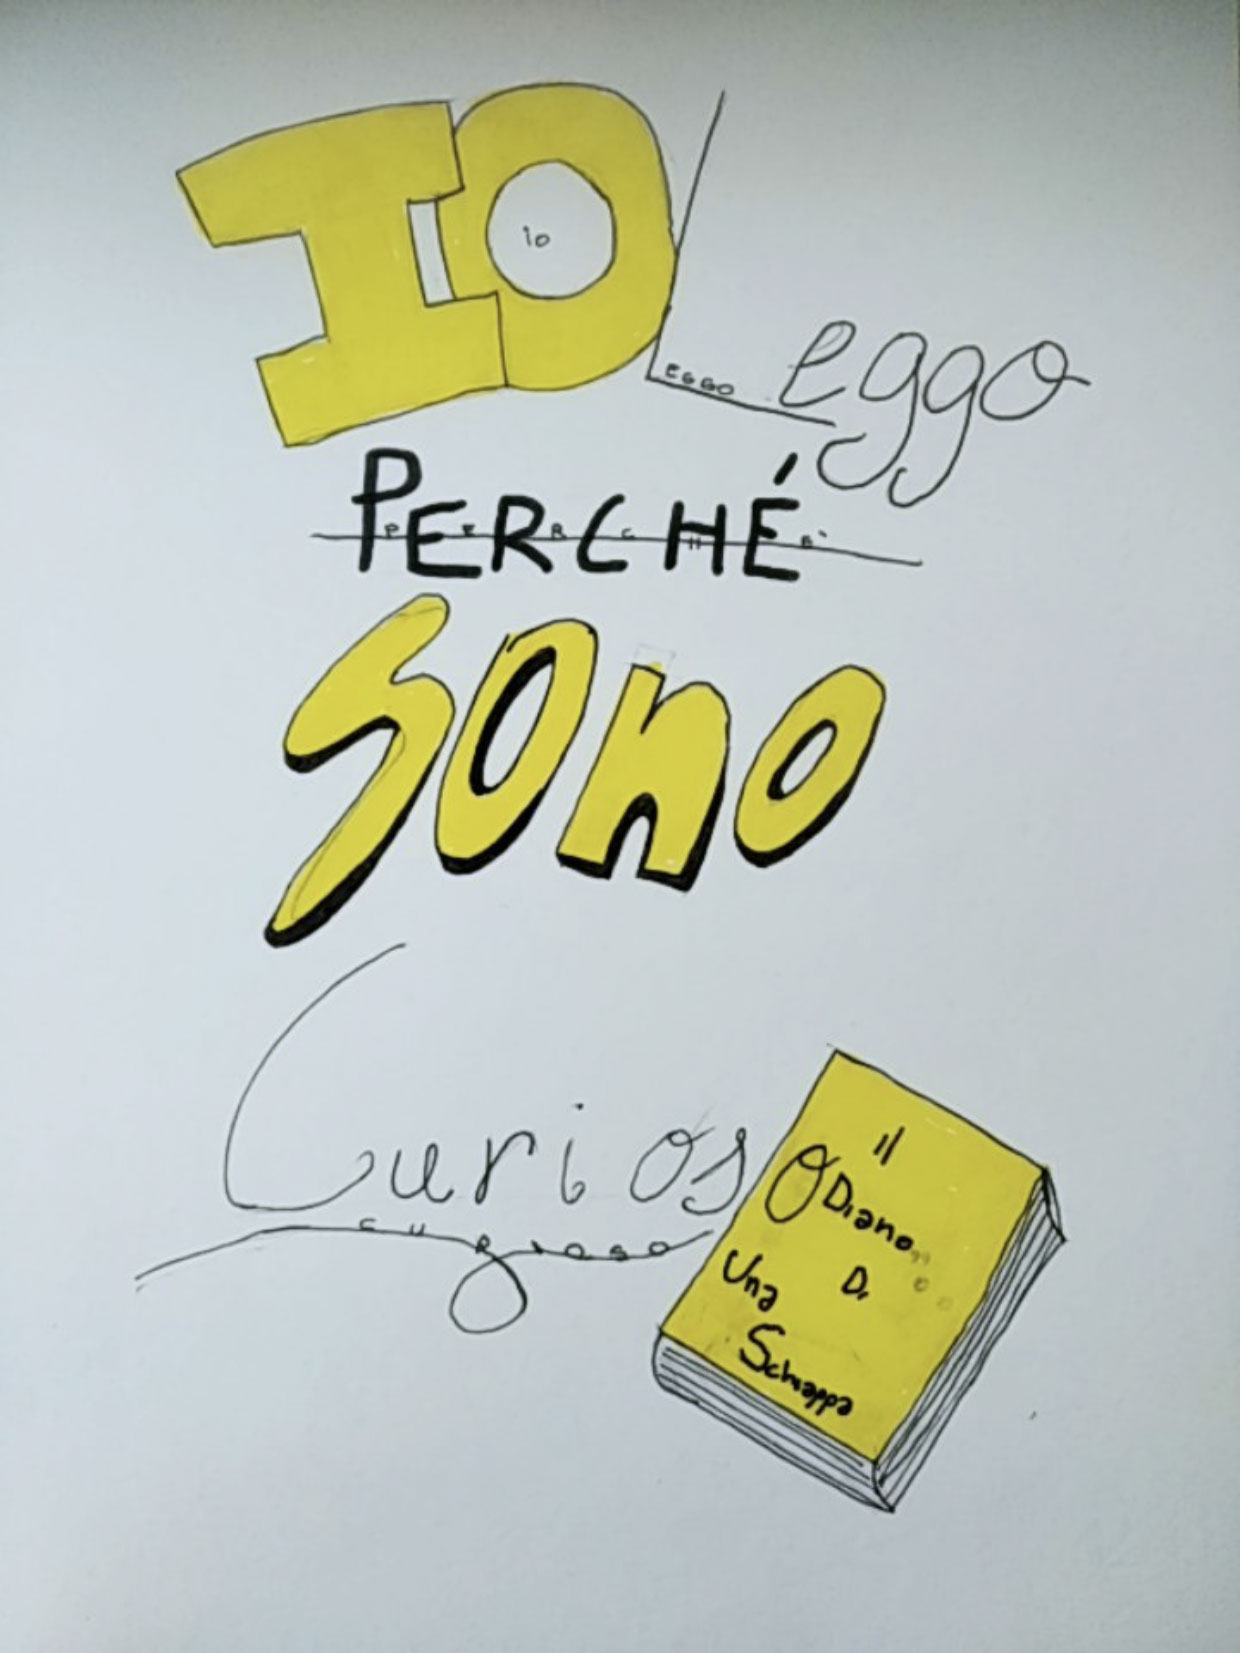 IO
io
Leggo
EGGO
PERCHÉ
PERCHE'
SONO
Curioso
CURIOSO
Il
Diario
Di
Una
Schiappa